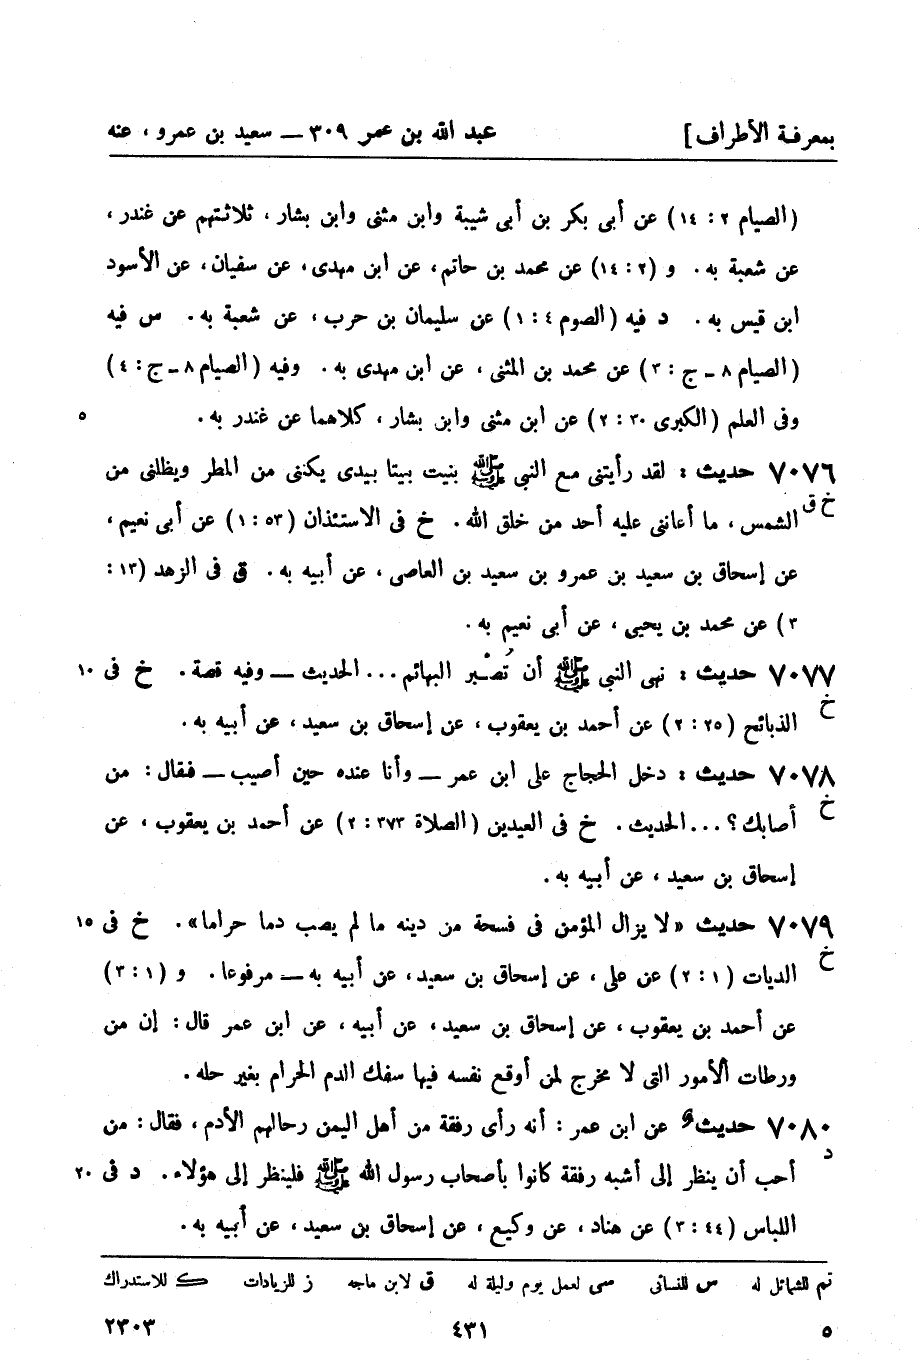 بمعرفة الأطراف] عبد الله بن عمر ٣٠٩ — سعيد بن عمرو ، عنه
(الصيام ٢ : ١٤) عن أبى بكر بن أبى شيبة وابن مثنى وابن بشار ، ثلاثتهم عن غندر ،
عن شعبة به . و (٢ : ١٤) عن محمد بن حاتم ، عن ابن مهدى ، عن سفيان ، عن الأسود
ابن قيس به . د فيه (الصوم ٤ : ١) عن سليمان بن حرب ، عن شعبة به . س فيه
(الصيام ٨ ـ ج : ٣) عن محمد بن المثنى ، عن ابن مهدى به . وفيه (الصيام ٨ ـ ج : ٤)
وفى العلم (الكبرى ٣٠ : ٢) عن ابن مثنى وابن بشار ، كلاهما عن غندر به . ٥
٧٠٧٦ حديث : لقد رأيتنى مع النبى ﷺ بنيت بيتا بيدى يكننى من المطر ويظلنى من
خ ق الشمس ، ما أعاننى عليه أحد من خلق الله . خ فى الاستئذان (٥٣ : ١) عن أبى نعيم ،
عن إسحاق بن سعيد بن عمرو بن سعيد بن العاصى ، عن أبيه به . ق فى الزهد (١٣ :
٣) عن محمد بن يحيى ، عن أبى نعيم به .
٧٠٧٧ حديث : نهى النبى ﷺ أن تُصْبر البهائم ... الحديث — وفيه قصة . خ فى ١٠
خ الذبائح (٢٥ : ٢) عن أحمد بن يعقوب ، عن إسحاق بن سعيد ، عن أبيه به .
٧٠٧٨ حديث : دخل الحجاج على ابن عمر — وأنا عنده حين أصيب — فقال : من
خ أصابك ؟ ... الحديث . خ فى العيدين (الصلاة ٣٧٣ : ٢) عن أحمد بن يعقوب ، عن
إسحاق بن سعيد ، عن أبيه به .
٧٠٧٩ حديث «لا يزال المؤمن فى فسحة من دينه ما لم يصب دما حراما» . خ فى ١٥
خ الديات (١ : ٢) عن على ، عن إسحاق بن سعيد ، عن أبيه به — مرفوعا . و (١ : ٣)
عن أحمد بن يعقوب ، عن إسحاق بن سعيد ، عن أبيه ، عن ابن عمر قال : إن من
ورطات الأمور التى لا مخرج لمن أوقع نفسه فيها سفك الدم الحرام بغير حله .
٧٠٨٠ حديث عن ابن عمر : أنه رأى رفقة من أهل اليمن رحالهم الأدم ، فقال : من
د أحب أن ينظر إلى أشبه رفقة كانوا بأصحاب رسول الله ﷺ فلينظر إلى هؤلاء . د فى ٢٠
اللباس (٤٤ : ٣) عن هناد ، عن وكيع ، عن إسحاق بن سعيد ، عن أبيه به .
تم للشمائل له س للنسائى سى لعمل يوم وليلة له ق لابن ماجه ز للزيادات ك للاستدراك
٥ ٤٣١ ٢٣٠٣